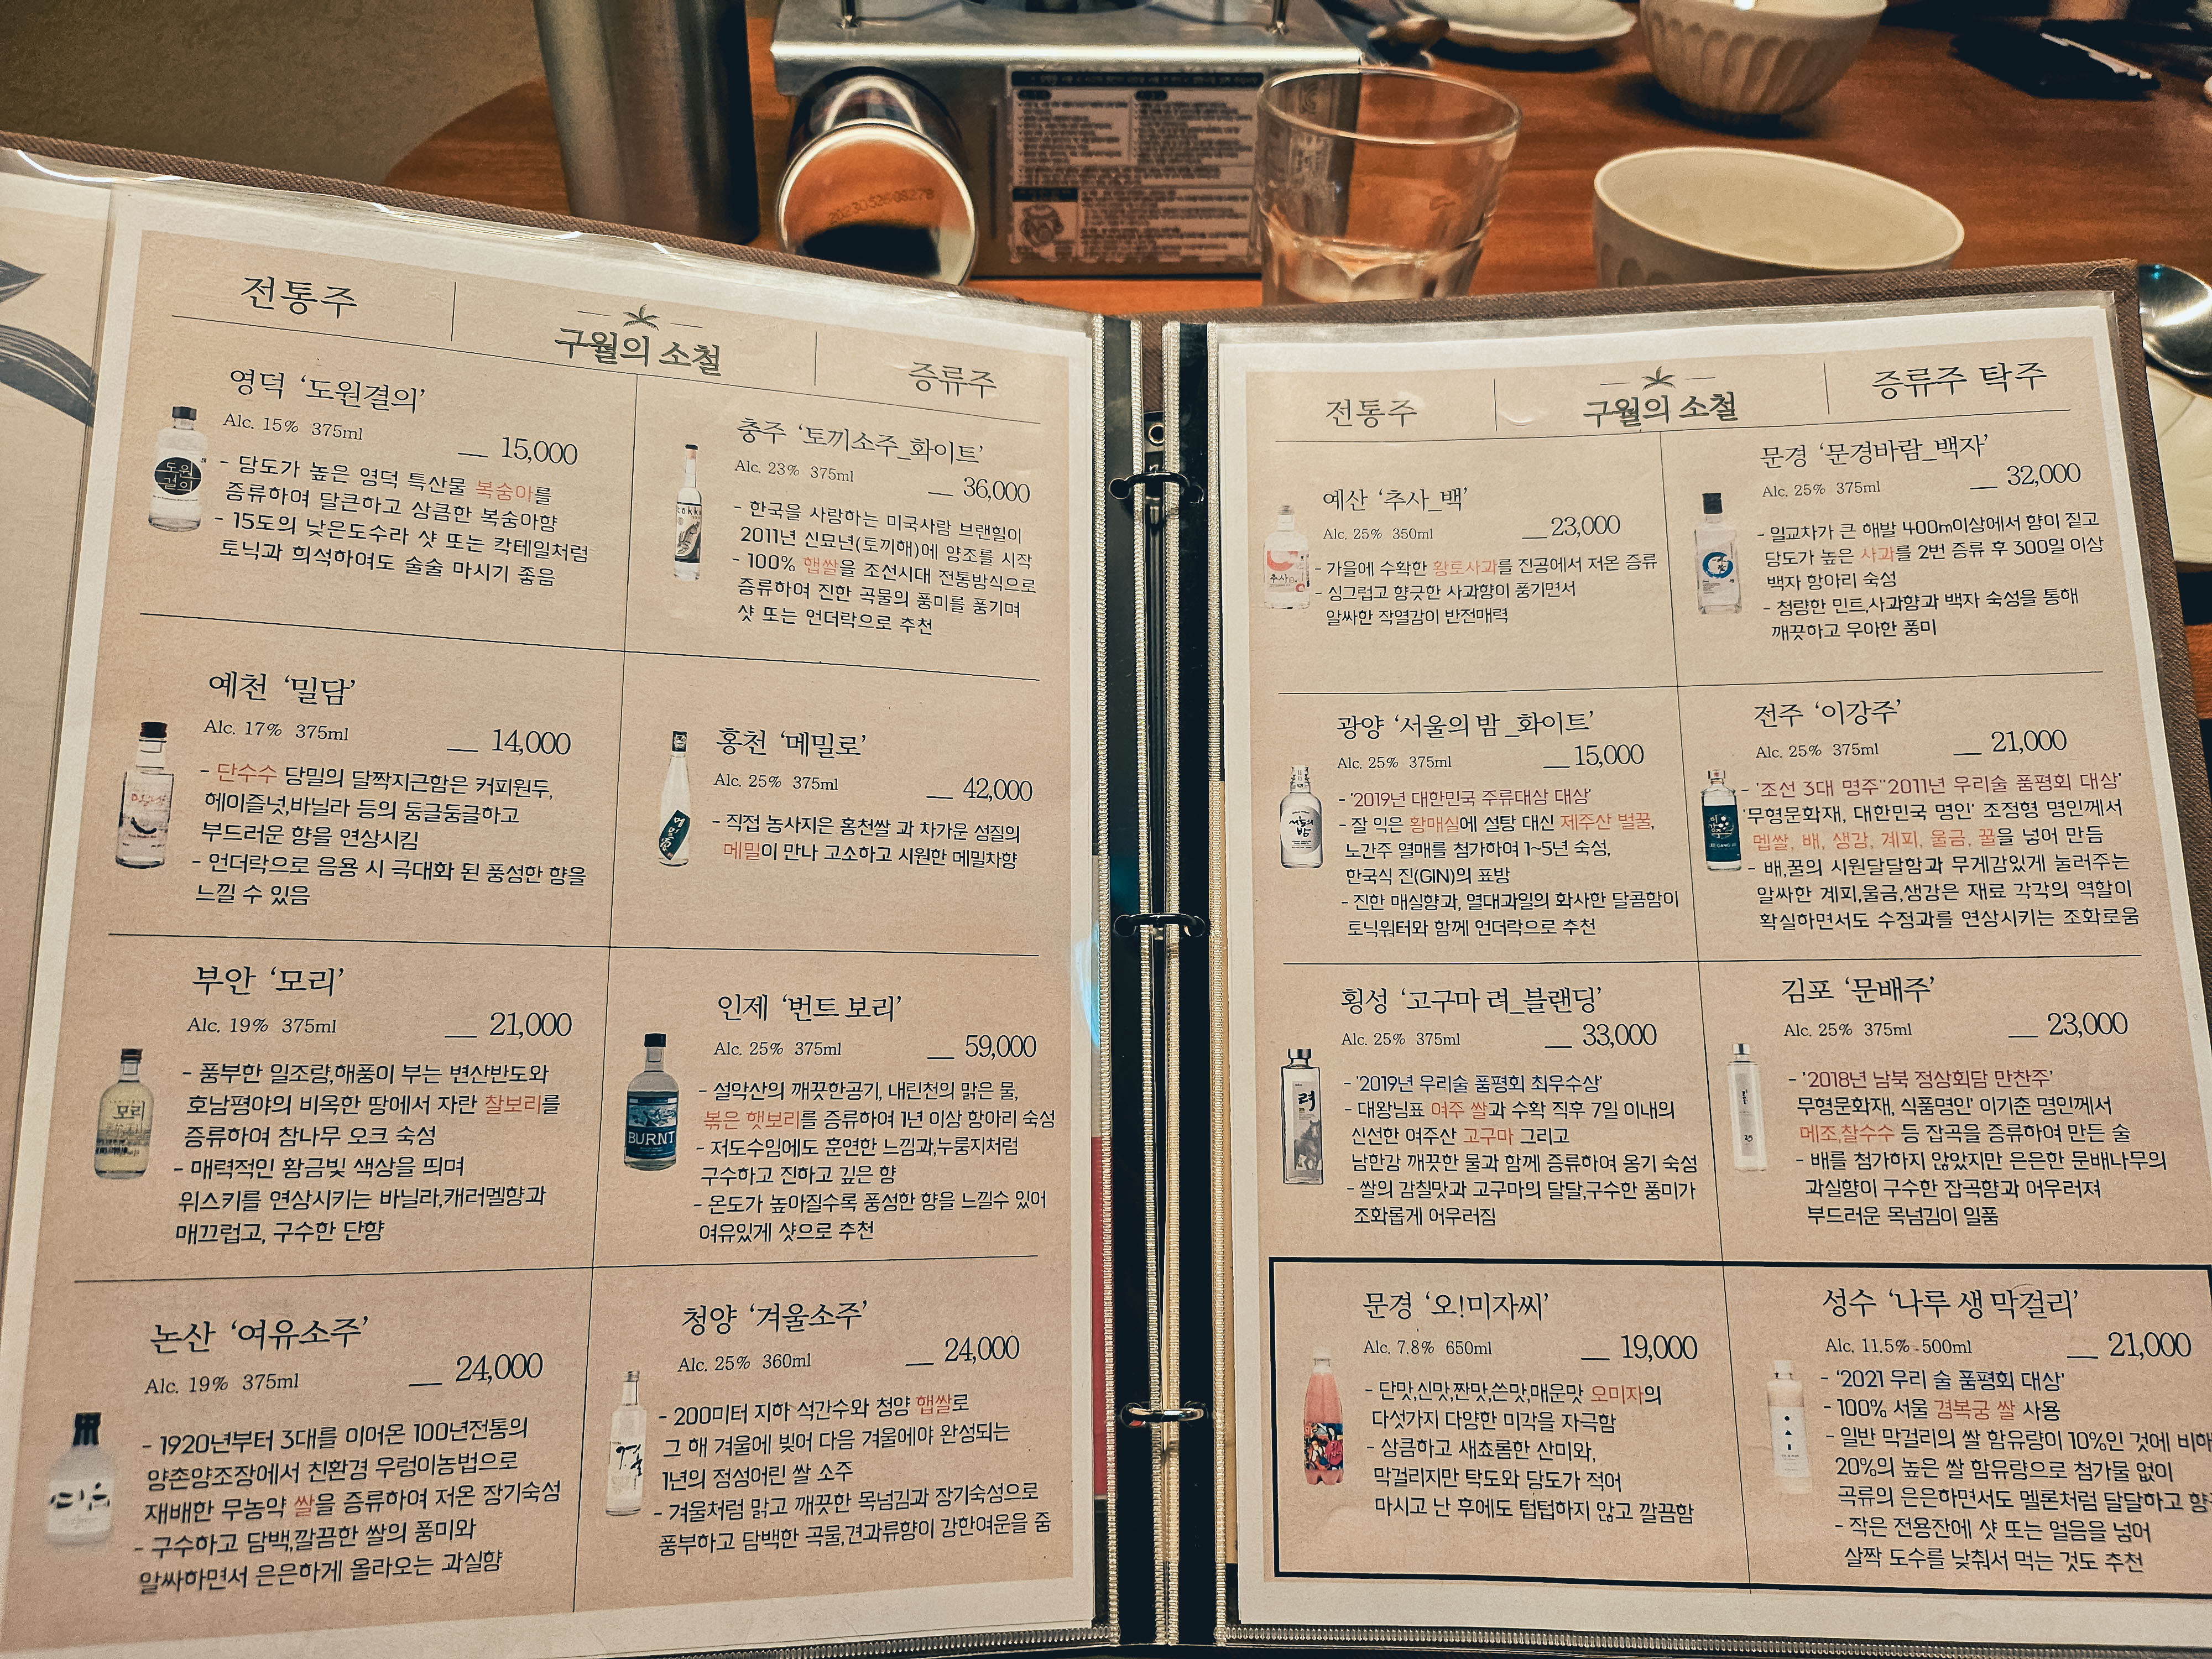 전통주
구월의 소철
증류주
영덕 '도원결의'
Alc. 15% 375ml
15,000
- 담도가 높은 영덕 특산물 복숭아를
증류하여 달큰하고 상큼한 복숭아향
- 15도의 낮은도수라 샷 또는 칵테일처럼
토닉과 희석하여도 술술 마시기 좋음
도원
결의
충주 '토끼소주_화이트'
Alc. 23% 375ml
36,000
- 한국을 사랑하는 미국사람 브랜힐이
2011년 신묘년(토끼해)에 양조를 시작
- 100% 햅쌀을 조선시대 전통방식으로
증류하여 진한 곡물의 풍미를 풍기며
샷 또는 언더락으로 추천
tokki
예천 '밀담'
Alc. 17% 375ml
14,000
- 단수수 당밀의 달짝지근함은 커피원두,
헤이즐넛,바닐라 등의 둥글둥글하고
부드러운 향을 연상시킴
- 언더락으로 음용 시 극대화 된 풍성한 향을
느낄 수 있음
홍천 '메밀로'
Alc. 25% 375ml
42,000
- 직접 농사지은 홍천쌀 과 차가운 성질의
메밀이 만나 고소하고 시원한 메밀차향
메밀로
부안 '모리'
Alc. 19% 375ml
21,000
- 풍부한 일조량,해풍이 부는 변산반도와
호남평야의 비옥한 땅에서 자란 찰보리를
증류하여 참나무 오크 숙성
- 매력적인 황금빛 색상을 띄며
위스키를 연상시키는 바닐라,캐러멜향과
매끄럽고, 구수한 단향
모리
인제 '번트 보리'
Alc. 25% 375ml
59,000
- 설악산의 깨끗한공기, 내린천의 맑은 물,
볶은 햇보리를 증류하여 1년 이상 항아리 숙성
- 저도수임에도 훈연한 느낌과,누룽지처럼
구수하고 진하고 깊은 향
- 온도가 높아질수록 풍성한 향을 느낄수 있어
여유있게 샷으로 추천
BURNT
논산 '여유소주'
Alc. 19% 375ml
24,000
- 1920년부터 3대를 이어온 100년전통의
양촌양조장에서 친환경 우렁이농법으로
재배한 무농약 쌀을 증류하여 저온 장기숙성
- 구수하고 담백,깔끔한 쌀의 풍미와
알싸하면서 은은하게 올라오는 과실향
여유
청양 '겨울소주'
Alc. 25% 360ml
24,000
- 200미터 지하 석간수와 청양 햅쌀로
그 해 겨울에 빚어 다음 겨울에야 완성되는
1년의 정성어린 쌀 소주
- 겨울처럼 맑고 깨끗한 목넘김과 장기숙성으로
풍부하고 담백한 곡물,견과류향이 강한여운을 줌
겨울
전통주
구월의 소철
증류주 탁주
예산 '추사_백'
Alc. 25% 350ml
23,000
- 가을에 수확한 황토사과를 진공에서 저온 증류
- 싱그럽고 향긋한 사과향이 풍기면서
알싸한 작열감이 반전매력
추사
문경 '문경바람_백자'
Alc. 25% 375ml
32,000
- 일교차가 큰 해발 400m이상에서 향이 짙고
당도가 높은 사과를 2번 증류 후 300일 이상
백자 항아리 숙성
- 청량한 민트,사과향과 백자 숙성을 통해
깨끗하고 우아한 풍미
광양 '서울의 밤_화이트'
Alc. 25% 375ml
15,000
- '2019년 대한민국 주류대상 대상'
- 잘 익은 황매실에 설탕 대신 제주산 벌꿀,
노간주 열매를 첨가하여 1~5년 숙성,
한국식 진(GIN)의 표방
- 진한 매실향과, 열대과일의 화사한 달콤함이
토닉워터와 함께 언더락으로 추천
서울의
밤
전주 '이강주'
Alc. 25% 375ml
21,000
- '조선 3대 명주''2011년 우리술 품평회 대상'
'무형문화재, 대한민국 명인' 조정형 명인께서
멥쌀, 배, 생강, 계피, 울금, 꿀을 넣어 만듬
- 배,꿀의 시원달달함과 무게감있게 눌러주는
알싸한 계피,울금,생강은 재료 각각의 역할이
확실하면서도 수정과를 연상시키는 조화로움
횡성 '고구마 려_블랜딩'
Alc. 25% 375ml
33,000
- '2019년 우리술 품평회 최우수상'
- 대왕님표 여주 쌀과 수확 직후 7일 이내의
신선한 여주산 고구마 그리고
남한강 깨끗한 물과 함께 증류하여 옹기 숙성
- 쌀의 감칠맛과 고구마의 달달,구수한 풍미가
조화롭게 어우러짐
려
김포 '문배주'
Alc. 25% 375ml
23,000
- '2018년 남북 정상회담 만찬주'
무형문화재, 식품명인' 이기춘 명인께서
메조,찰수수 등 잡곡을 증류하여 만든 술
- 배를 첨가하지 않았지만 은은한 문배나무의
과실향이 구수한 잡곡향과 어우러져
부드러운 목넘김이 일품
문경 '오!미자씨'
Alc. 7.8% 650ml
19,000
- 단맛,신맛,짠맛,쓴맛,매운맛 오미자의
다섯가지 다양한 미각을 자극함
- 상큼하고 새쵸롬한 산미와,
막걸리지만 탁도와 당도가 적어
마시고 난 후에도 텁텁하지 않고 깔끔함
성수 '나루 생 막걸리'
Alc. 11.5% 500ml
21,000
- '2021 우리 술 품평회 대상'
- 100% 서울 경복궁 쌀 사용
- 일반 막걸리의 쌀 함유량이 10%인 것에 비하
20%의 높은 쌀 함유량으로 첨가물 없이
곡류의 은은하면서도 멜론처럼 달달하고 향
- 작은 전용잔에 샷 또는 얼음을 넣어
살짝 도수를 낮춰서 먹는 것도 추천